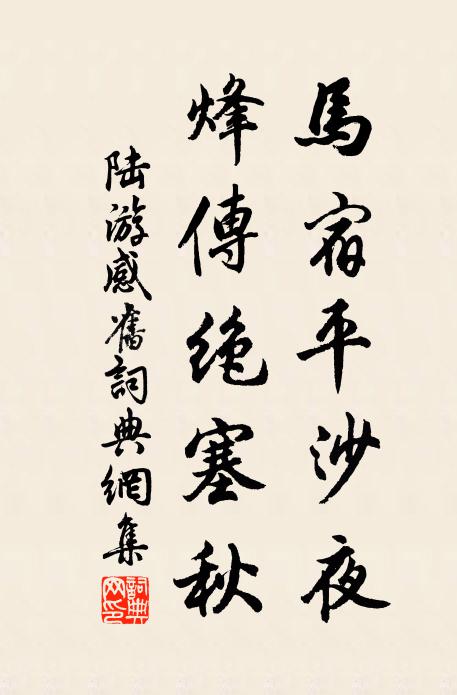 馬宿平沙夜
烽傳絶塞秋
陸游感舊詞典網集
詞典網印